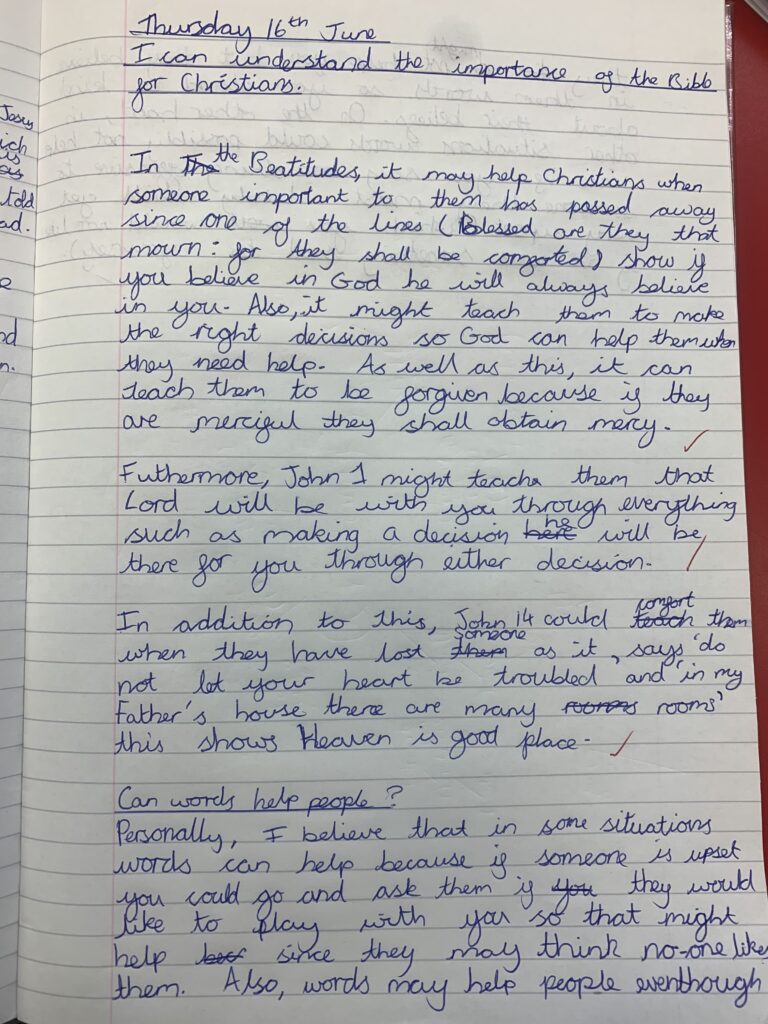 Thursday 16th June
I can understand the importance of the Bible
for Christians.
In the Beatitudes, it may help Christians when
someone important to them has passed away
since one of the lines (Blessed are they that
mown: for they shall be comforted) show if
you believe in God he will always believe
in you. Also, it might teach them to make
the right decisions so God can help them when
they need help. As well as this, it can
teach them to be forgiven because if they
are merciful they shall obtain mercy.
Futhermore, John 1 might teach them that
Lord will be with you through everything
such as making a decision he will be
there for you through either decision.
In addition to this, John 14 could comfort them
when they have lost someone as it, says 'do
not let your heart be troubled and 'in my
Father's house there are many rooms'
this shows Heaven is good place.
Can words help people?
Personally, I believe that in some situations
words can help because if someone is upset
you could go and ask them if they would
like to play with you so that might
help since they may think no-one likes
them. Also, words may help people eventhough
Jesus
ich
is
as
told
ad.
e
nd
n.